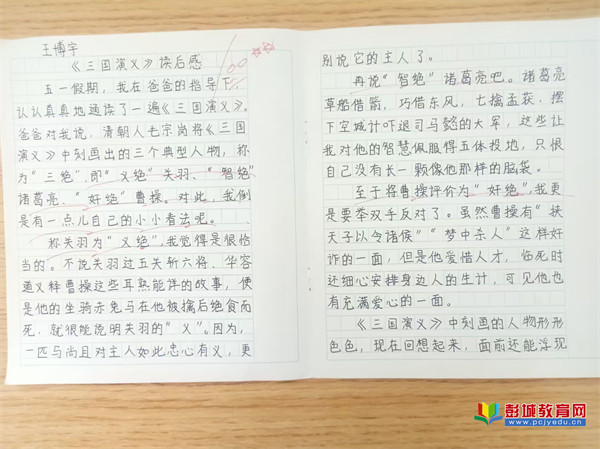 王博宇
《三国演义》读后感
100
五一假期，我在爸爸的指导下，
认认真真地通读了一遍《三国演义》。
爸爸对我说，清朝人毛宗岗将《三国
演义》中刻画出的三个典型人物，称
为“三绝”，即“义绝”关羽、“智绝”
诸葛亮、“奸绝”曹操。对此，我倒
是有一点儿自己的小小看法呢。
称关羽为“义绝”，我觉得是很恰
当的。不说关羽过五关斩六将、华容
道义释曹操这些耳熟能详的故事，便
是他的坐骑赤兔马在他被擒后绝食而
死，就很能说明关羽的“义”。因为，
一匹马尚且对主人如此忠心有义，更
别说它的主人了。
再说“智绝”诸葛亮吧。诸葛亮
草船借箭，巧借东风，七擒孟获，摆
下空城计吓退司马懿的大军，这些让
我对他的智慧佩服得五体投地，只恨
自己没有长一颗像他那样的脑袋。
至于将曹操评价为“奸绝”，我更
是要举双手反对了。虽然曹操有“挟
天子以令诸侯”“梦中杀人”这样奸
诈的一面，但是他爱惜人才，临死时
还细心安排身边人的生计，可见他也
有充满爱心的一面。
《三国演义》中刻画的人物形形
色色，现在回想起来，面前还能浮现
彭城教育网
www.pcjyedu.cn